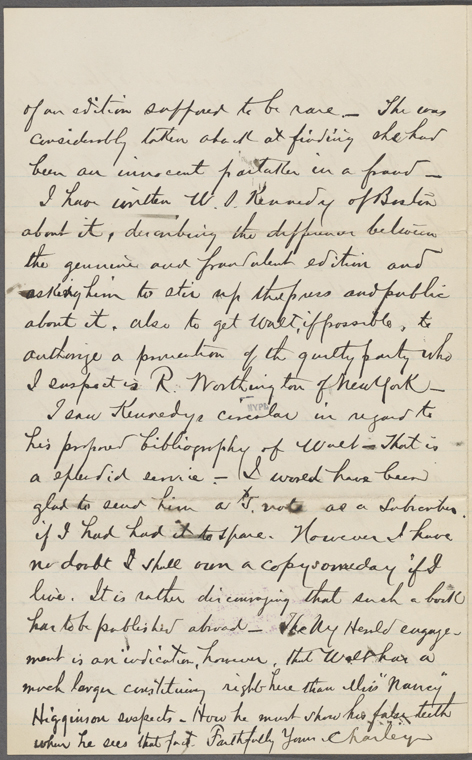 of an edition supposed to be rare — She was
considerably taken aback at finding she had
been an innocent partaker in a fraud —
I have written W. S. Kennedy of Boston
about it, describing the difference between
the genuine and fraudulent edition and
asking him to stir up the press and public
about it, also to get Walt, if possible, to
authorize a prosecution of the guilty party who
I suspect is R. Worthington of New York —
I saw Kennedys circular in regard to
his proposed bibliography of Walt — That is
a splendid service — I would have been
glad to send him a $5. note as a subscriber
if I had had it to spare. However I have
no doubt I shall own a copy someday if I
live. It is rather discouraging that such a book
has to be published abroad — The NY Herald engage-
ment is an indication, however, that Walt has a
much larger constituency right here than Miss "Nancy"
Higginson suspects. How he must show his false teeth
when he sees that fact. Faithfully Yours
NYPL